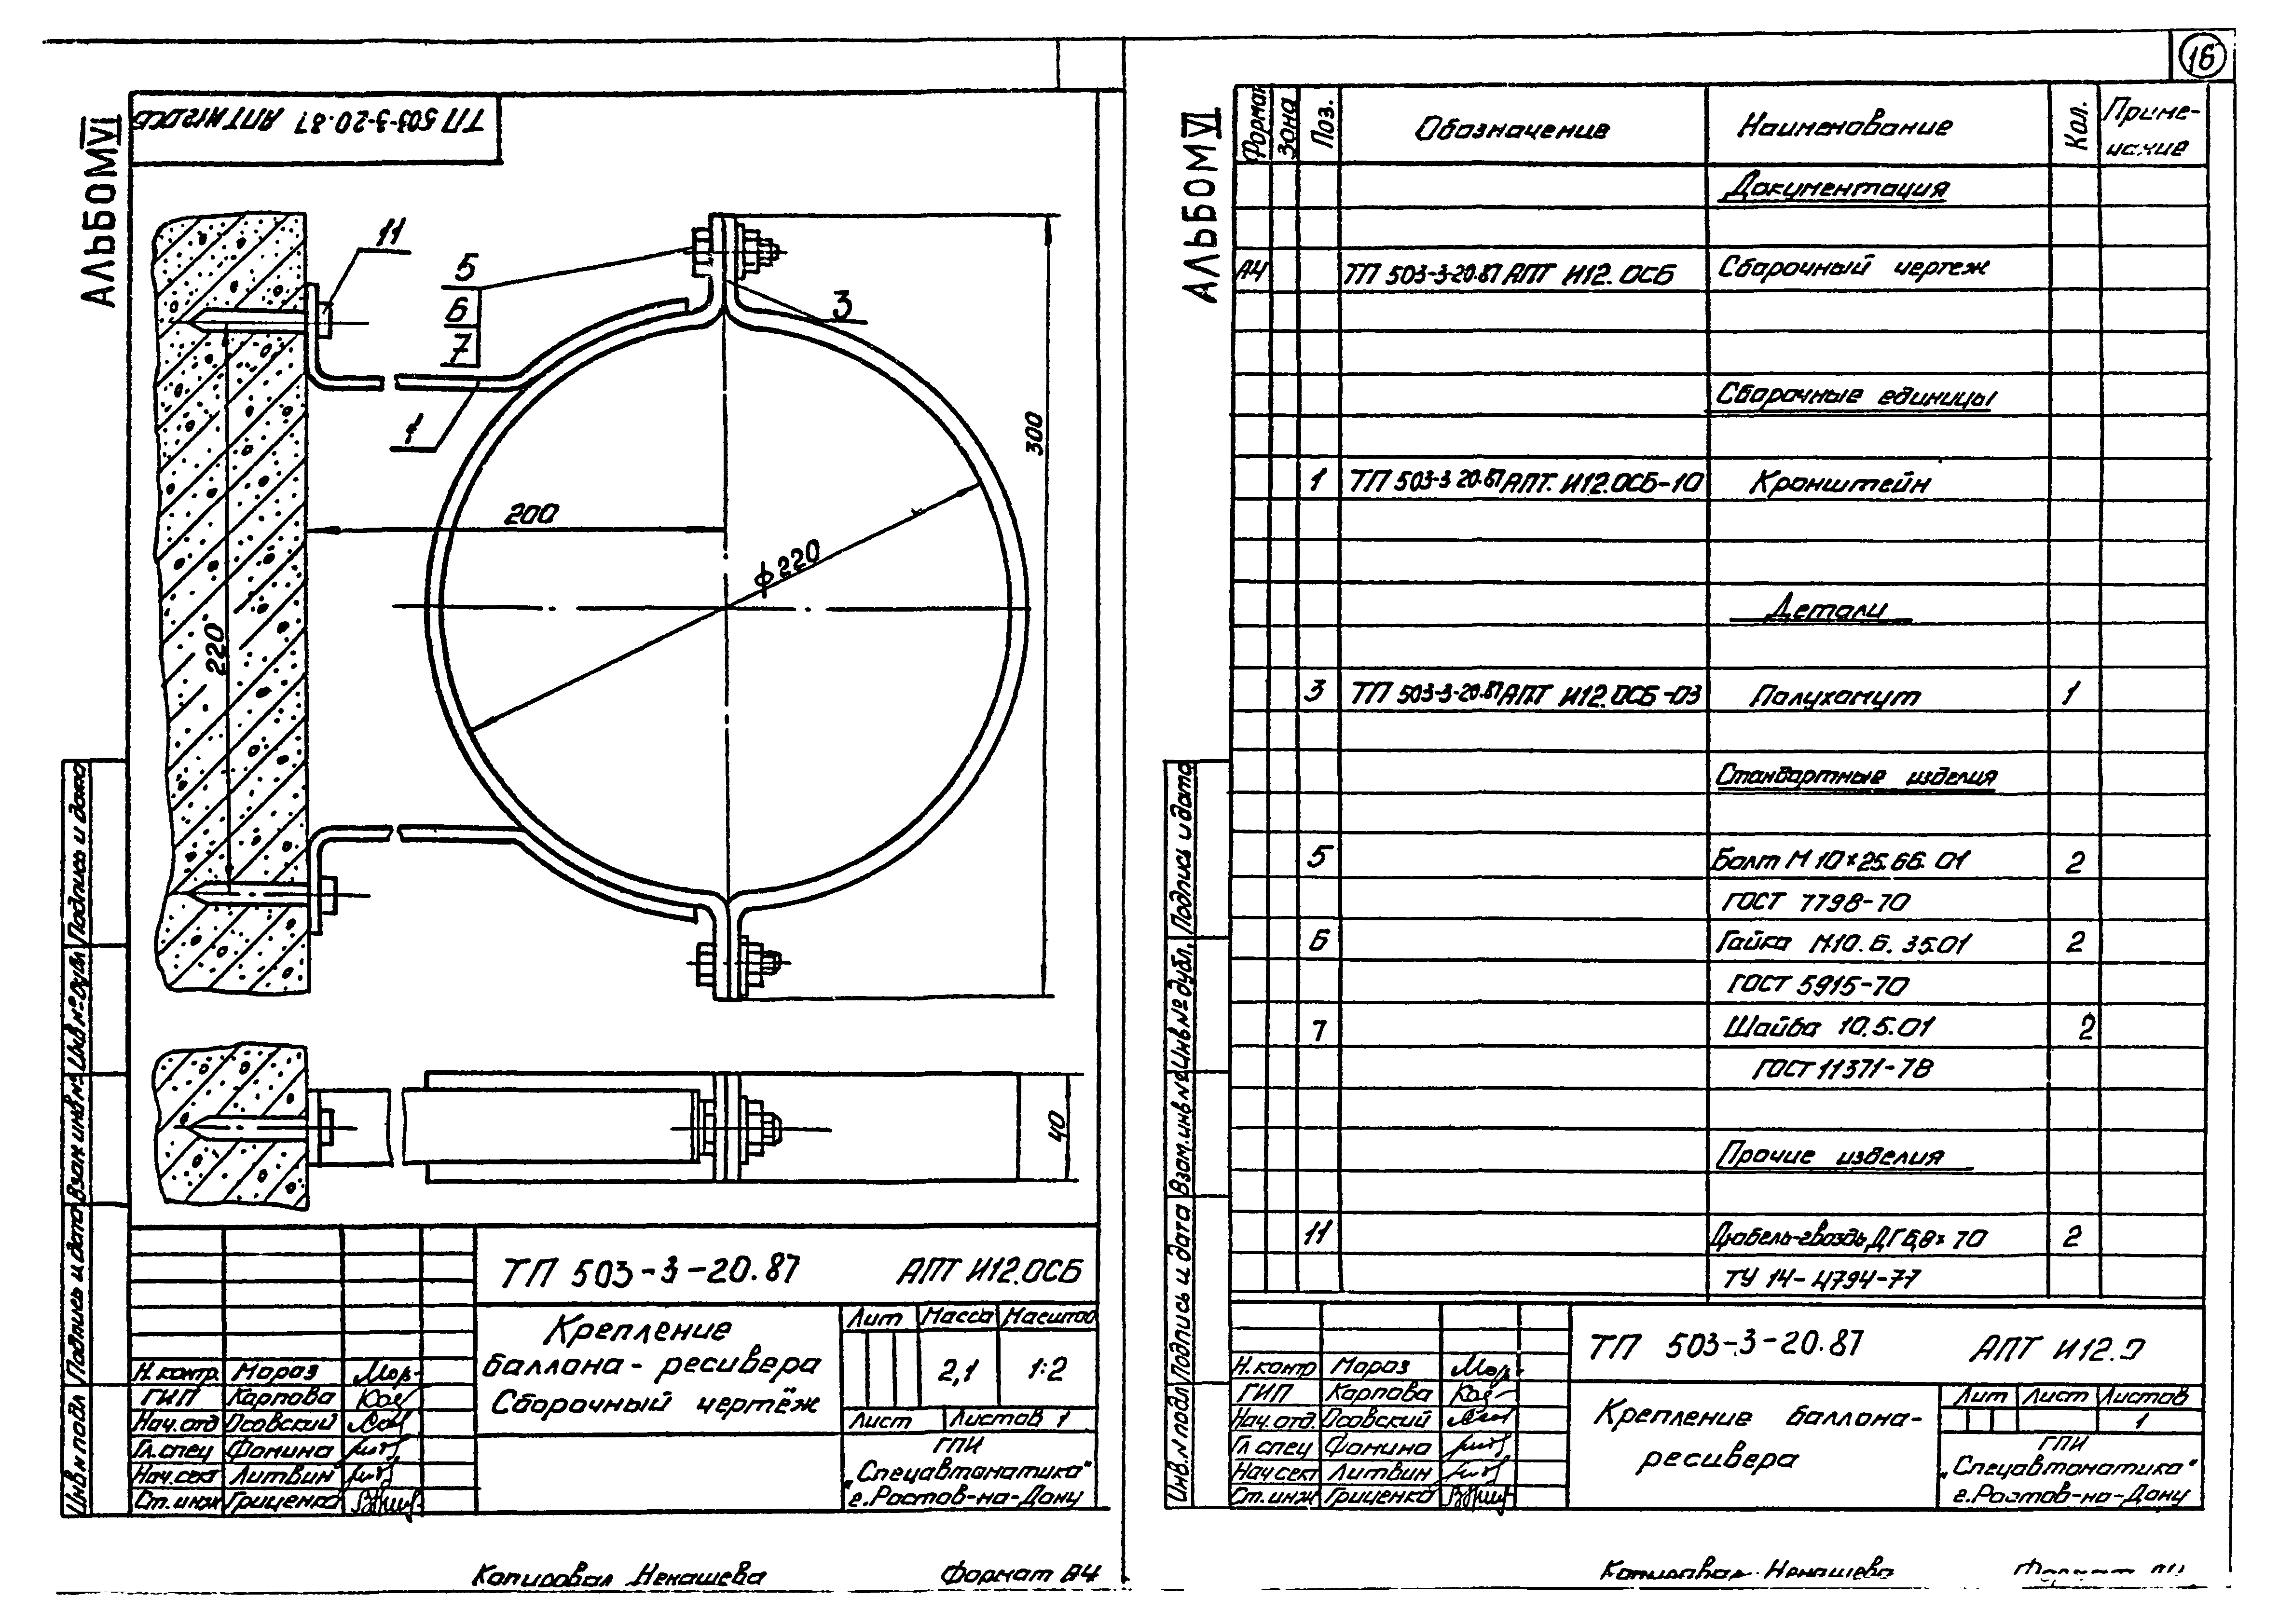 16
АЛЬБОМ VI
ТП 503-3-20.87 АПТ И12.ОСБ
11
5
6
7
3
1
200
ф 220
220
300
40
Инв.№ подл
Подпись и дата
Взам инв №
Инв № дубл
Подпись и дата
ТП 503-3-20.87 АПТ И12.ОСБ
Крепление
баллона-ресивера
Сборочный чертёж
Лит Масса Масштаб
2,1 1:2
Лист Листов 1
ГПИ
„Спецавтоматика"
г.Ростов-на-Дону
Н.контр. Мороз
ГИП Карпова
Нач.отд Осовский
Гл.спец Фомина
Нач.сект Литвин
Ст.инж Гриценко
Копировал Некашева Формат А4
АЛЬБОМ VI
Формат Зона Поз. Обозначение Наименование Кол. Примечание
Документация
А4 ТП 503-3-20.87 АПТ И12.ОСБ Сборочный чертеж
Сборочные единицы
1 ТП 503-3 20.87 АПТ. И12.ОСБ-10 Кронштейн
Детали
3 ТП 503-3-20.87 АПТ И12.ОСБ-03 Полухомут 1
Стандартные изделия
5 Болт М 10×25.66.01 2
ГОСТ 7798-70
6 Гайка М10.6.35.01 2
ГОСТ 5915-70
7 Шайба 10.5.01 2
ГОСТ 11371-78
Прочие изделия
11 Дюбель-гвоздь ДГ 6,8×70 2
ТУ 14-4794-77
Инв.№ подл
Подпись и дата
Взам.инв №
Инв № дубл.
Подпись и дата
ТП 503-3-20.87 АПТ И12.О
Крепление баллона-
ресивера
Лит Лист Листов
1
ГПИ
„Спецавтоматика"
г.Ростов-на-Дону
Н.контр Мороз
ГИП Карпова
Нач.отд. Осовский
Гл.спец Фомина
Нач.сект Литвин
Ст.инж Гриценко
Копировал Некашева Формат